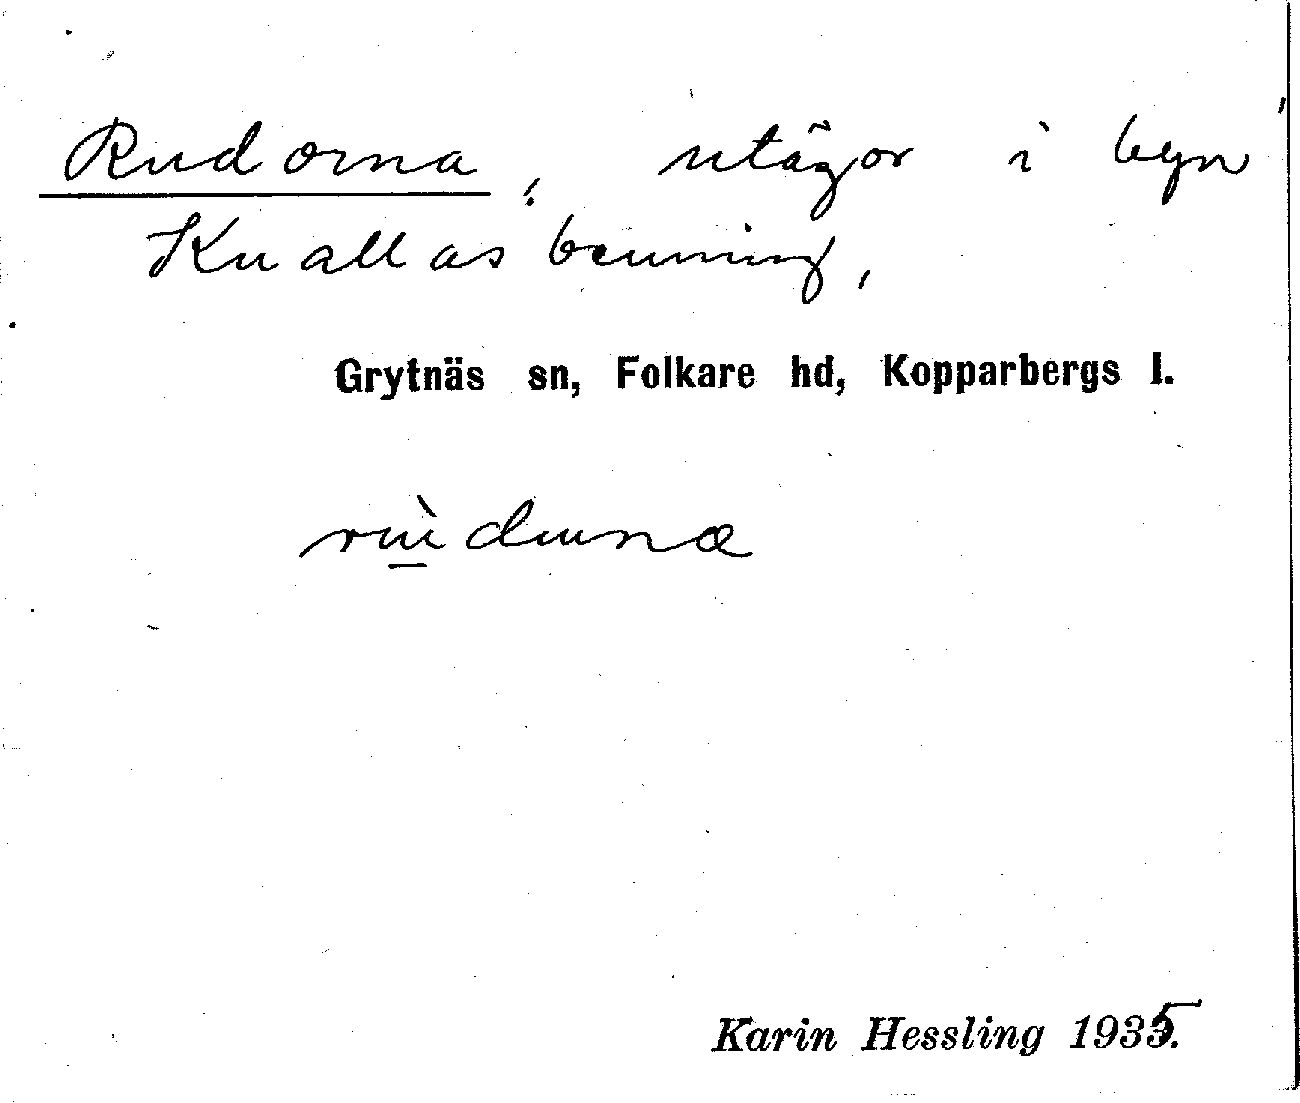 Rudorna, utägor i byn
Knallasbenning,
Grytnäs sn, Folkare hd, Kopparbergs l.
rù̱duna
Karin Hessling 1935.